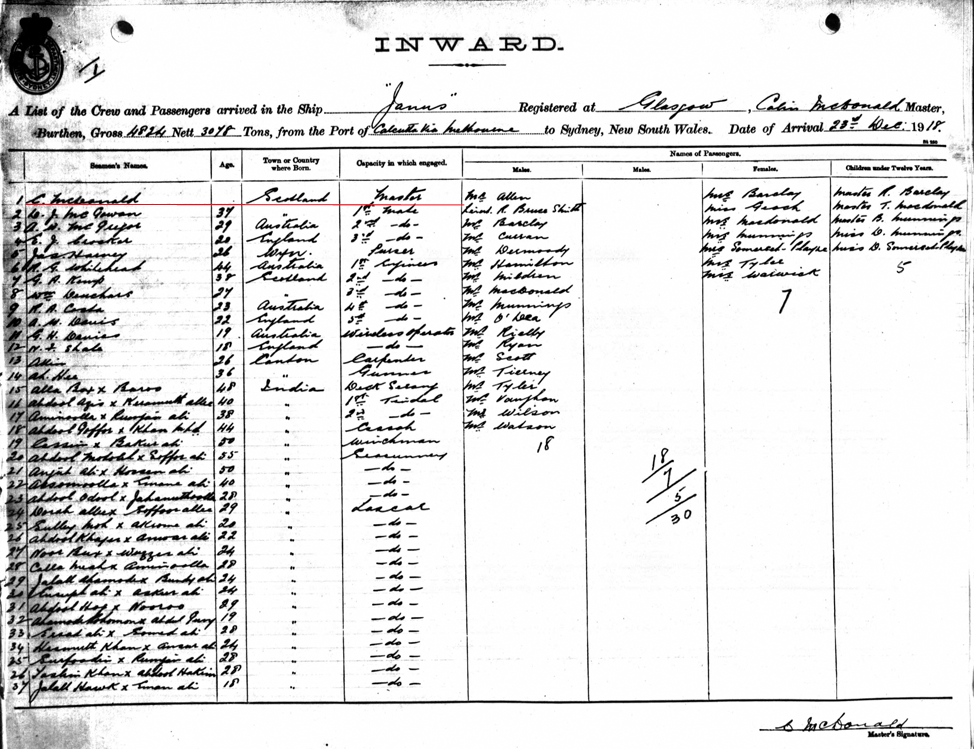 INWARD.
A List of the Crew and Passengers arrived in the Ship "Janus" Registered at Glasgow, Colin McDonald Master,
Burthen, Gross 4824 Nett 3048 Tons, from the Port of Calcutta via Melbourne to Sydney, New South Wales. Date of Arrival 23rd Dec: 1918.
Names of Passengers.
Seamen's Names. Age. Town or Country where Born. Capacity in which engaged. Males. Males. Females. Children under Twelve Years.
1 C. McDonald Scotland Master Mr Allen Mrs Barclay Master R. Barclay
2 D. J. McGowan 37 " 1st Mate Lieut. R. Bruce Miss Gooch Master T. Macdonald
3 A. W. McGregor 29 Australia 2nd -do- Mr Barclay Mrs Macdonald Master B. Munnings
4 E. J. Crocker 20 England 3rd -do- Mr Curran Mrs Munnings Miss D. Munnings
5 Jas Harvey 26 Purser Mr Dermody Mrs Somerset Miss D. Somerset
6 R. G. Whitehead 44 Australia 1st Engineer Mr Hamilton Mrs Tyler 5
7 G. R. Kemp 38 Scotland 2nd -do- Mr Mildren Mrs Warwick
8 Wm 27 " 3rd -do- Mr Macdonald 7
9 R. A. Costa 23 Australia 4th -do- Mr Munnings
10 A. M. Davis 22 England 5th -do- Mr O'Dea
11 G. H. Davies 19 Australia Wireless Operator Mr Rielly
12 N. F. Shale 18 England -do- Mr Ryan
13 Akin 26 Canton Carpenter Mr Scott
14 Ah. Hee 36 " Gunner Mr Tierney
15 Alla Box x Baros 48 India Deck Serang Mr Tyler
16 Abdool Azis x Keramutt allee 40 " 1st Tindal Mr Vaughan
17 Aminoolla x Rumjan ali 38 " 2nd -do- Mr Wilson
18 Abdool Goffor x Khan 44 " Cassab Mr Watson
19 Cassim x Bakur ali 50 " Winchman 18
20 Abdool x Goffor ali 55 " Seacunney 18
21 Anjub ali x Hossen ali 50 " -do- 7
22 Assomoolla x Emane ali 40 " -do- 5
23 Abdool Odool x 28 " -do- 30
24 Dorah allee x Goffoor allee 29 " Lascar
25 Sulley Moh x Akrome ali 20 " -do-
26 Abdool Khayer x Anwar ali 22 " -do-
27 Noor Bux x Wuzzer ali 24 " -do-
28 Calla Meah x Aminoolla 28 " -do-
29 Jalall x Bundy ali 24 " -do-
30 Eusuph ali x Asker ali 24 " -do-
31 Abdool Hog x Nooroo 29 " -do-
32 x Abdul 19 " -do-
33 Essad ali x Somed ali 28 " -do-
34 Hasmutt Khan x Ansar ali 24 " -do-
35 x Rumjan ali 28 " -do-
36 Khan x Abdool Hakim 28 " -do-
37 Jalall Hawk x Eman ali 18 " -do-
C McDonald
Master's Signature.